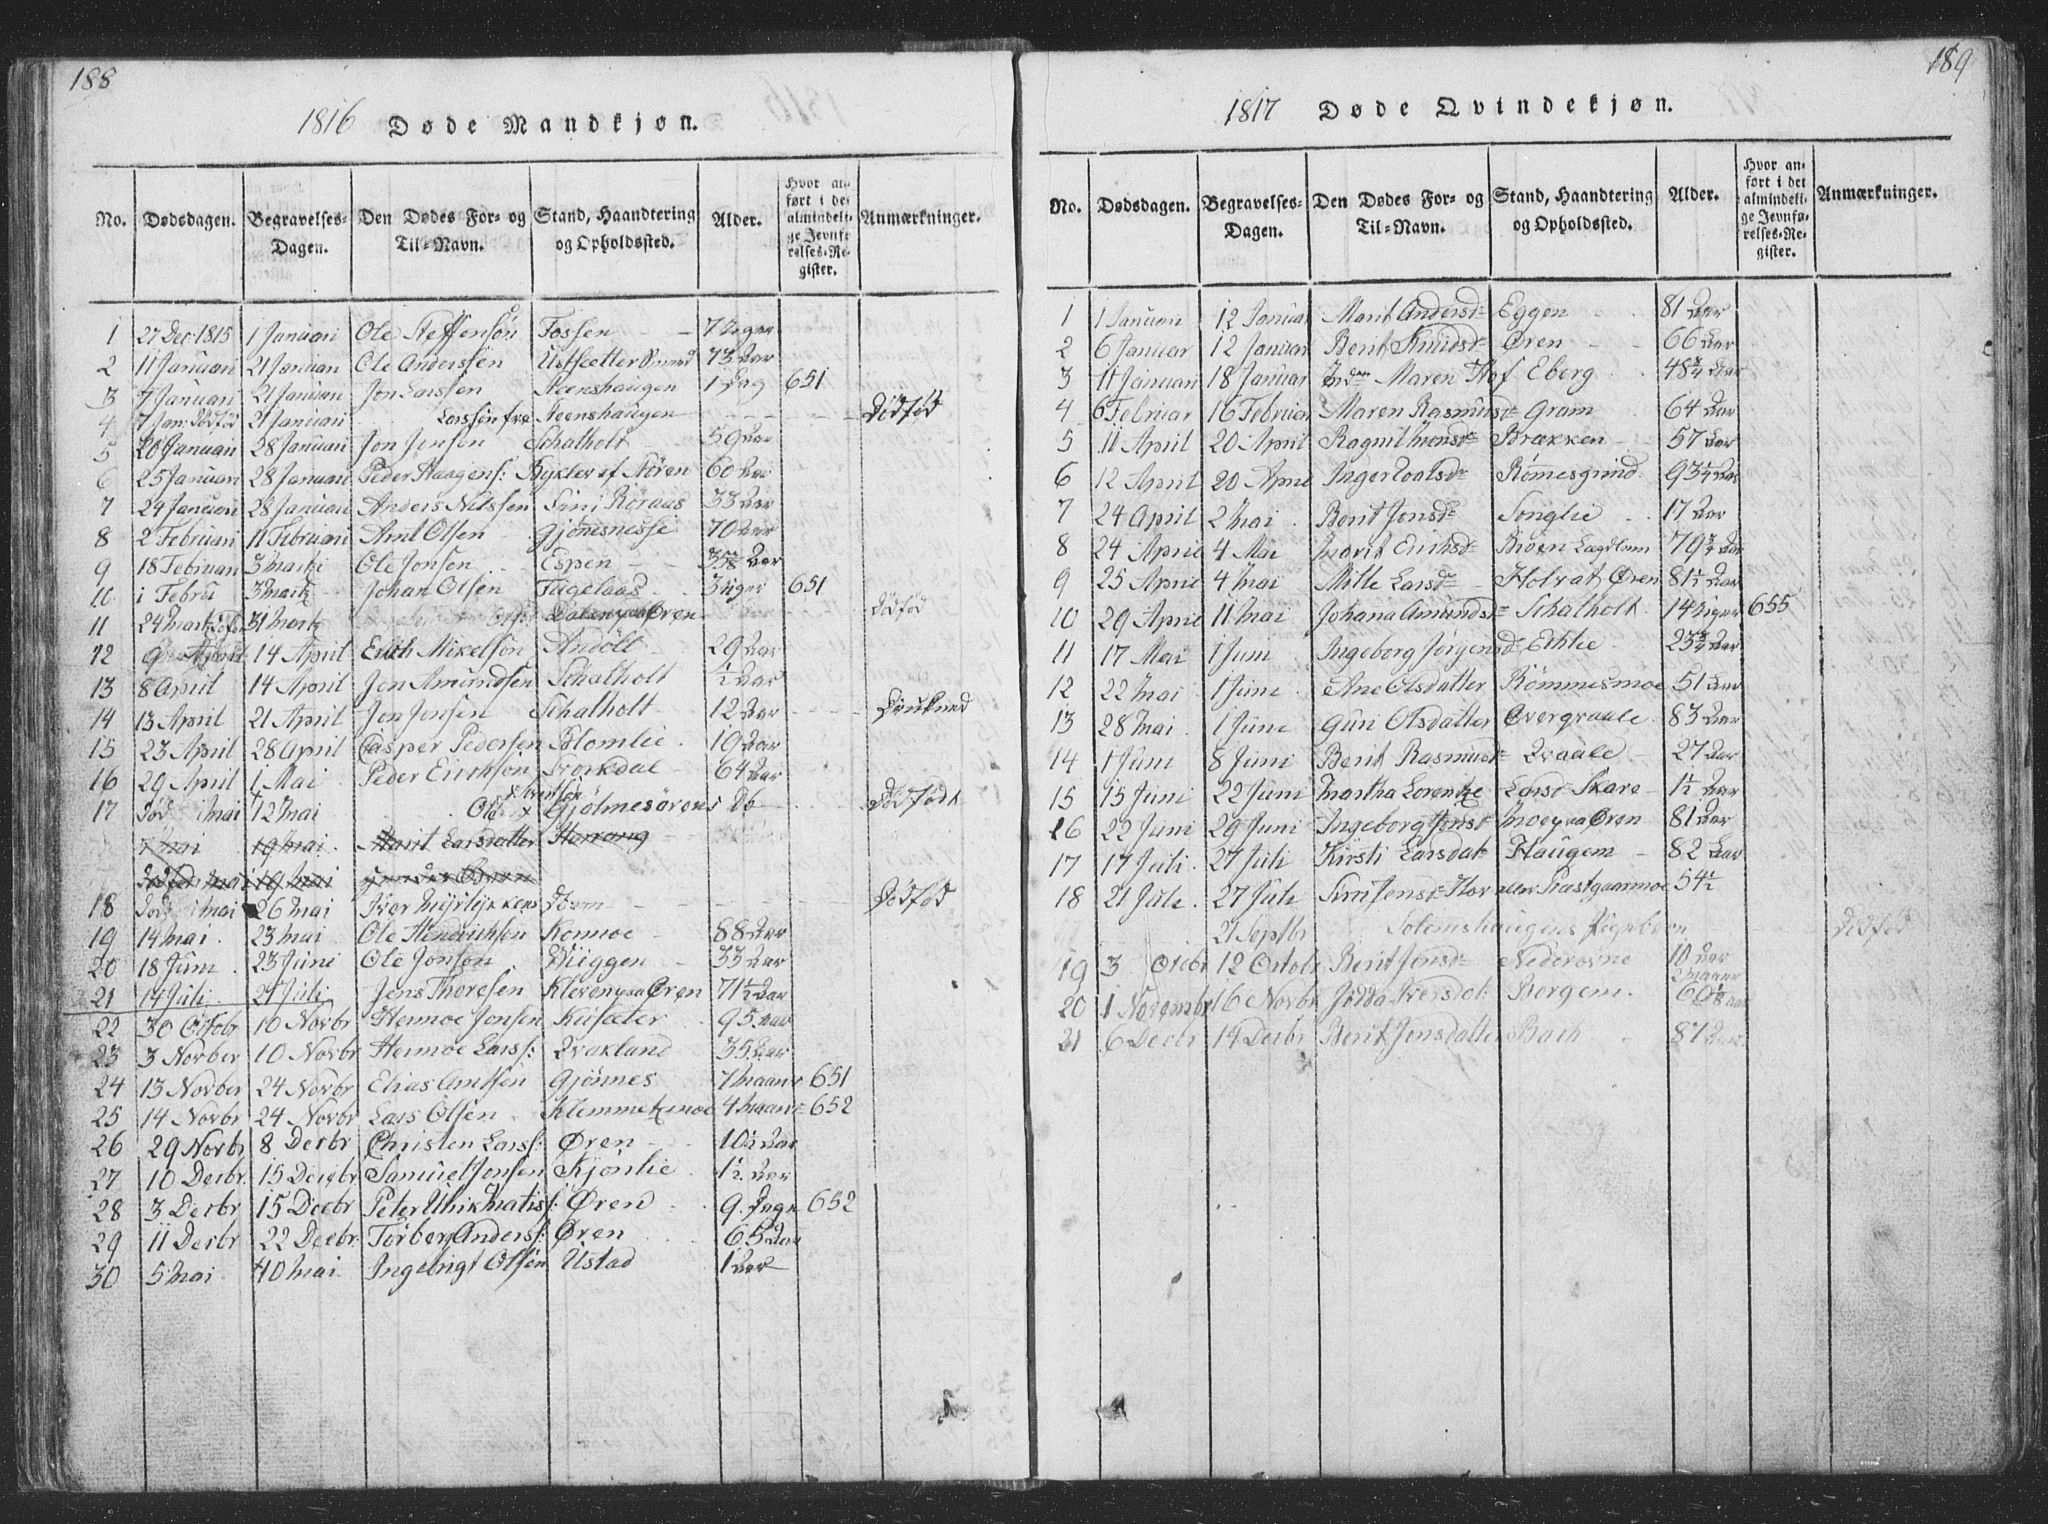 188
1816 Døde Mandkjøn.
No. Dødsdagen. Begravelses-Dagen. Den Dødes For- og Til-Navn. Stand, Haandtering og Opholdssted. Alder. Hvor anført i det almindelige Jevnførelses-Register. Anmærkninger.
1 27 Dec 1815 1 Januari Ole Steffensøn Fossen 7 Uger
2 11 Januari 21 Januari Ole Anderssen 73 Aar
3 7 Januari 21 Januari Jon Larssen Steenshaugen 1 Dag 651
4 7 Jan: Dödföd 21 Januari Larssön fra Steenshaugen Dödföd
5 20 Januari 28 Januari Jon Jensen Schatholt 59 Aar
6 25 Januari 28 Januari Peder Haagens: af Stören 60 Aar
7 24 Januari 28 Januari Anders Nilssen Röraas 33 Aar
8 2 Februari 11 Februari Arnt Olsen Gjönesnesse 70 Aar
9 18 Februari 3 Martz Ole Jonsen Espen Aar
10 i Febru 3 Martz Johan Olsen Fuglaas 3 Uger 651
11 24 Martz 31 Martz Øren Dödföd
12 9 April 14 April Erich Mikelsön 29 Aar
13 8 April 14 April Jon Amundsen Schatholt ½ Aar
14 13 April 21 April Jon Jonsen Schatholt 12 Aar Druknud
15 23 April 28 April Casper Pedersen Blomlie 19 Aar
16 29 April 1 Mai Peder Erichsön Storkdal 64 Aar
17 Död Mai 12 Mai Ole Gjölmesörens Db Dödfödt
7 Mai 19 Mai Marit Larsdatter
Mai 19 Mai
18 Död Mai 26 Mai Iver Dödföd
19 14 Mai 23 Mai Ole Hendrichsen Konmoe 88 Aar
20 18 Juni 23 Juni Ole Jonsön Wiggen 33 Aar
21 14 Juli 21 Juli Jens Thoresen Øren 71½ Aar
22 30 Octobr 10 Novbr Hermoe Jonsen Kusæter 95 Aar
23 3 Novber 10 Novbr Hermoe Larss: Qvakland 35 Aar
24 13 Novber 24 Novbr Elias Arntsen Gjönnes 7 Maanr 651
25 14 Novbr 24 Novbr Lars Olsen Klemmetzmoe 4 Maanr 652
26 29 Novbr 8 Decbr Christen Larss: Øren 10½ Aar
27 10 Decbr 15 Decbr Samuel Jonsen Kjönlie 1½ Aar
28 3 Decbr 15 Decbr Peter Ulrik Matis: Øren 9 Dage 652
29 11 Decbr 22 Decbr Torber Anders: Øren 65 Aar
30 5 Mai 10 Mai Ingebrigt Olsen Ustad 1 Aar
189
1817 Døde Qvindekjøn.
No. Dødsdagen. Begravelses-Dagen. Den Dødes For- og Til-Navn. Stand, Haandtering og Opholdssted. Alder. Hvor anført i det almindelige Jevnførelses-Register. Anmærkninger.
1 1 Januari 12 Januar Marit Andersdr Eggen 81 Aar
2 6 Januar 12 Januar Berit Knudsdr Øren 66 Aar
3 11 Januari 18 Januar Maren Hof Eberg 48¾ Aar
4 6 Februar 16 Februar Maren Rasmusdr Gram 64 Aar
5 11 April 20 April Ragnil Brækken 57 Aar
6 12 April 20 April Inger Rømesgrind 93¼ Aar
7 24 April 2 Mai Berit Jonsdr Songlie 17 Aar
8 24 April 4 Mai Marit Erichsdr 79¾ Aar
9 25 April 4 Mai Mille Larsdr Øren 81½ Aar
10 29 April 11 Mai Johana Amundsdr Schatholt 14 Uger 655
11 17 Mai 1 Juni Ingeborg Jørgensd Ethlie 23¾ Aar
12 22 Mai 1 Juni Ane Olsdatter Römmesmoe 51 Aar
13 28 Mai 1 Juni Guri Olsdatter Overqvaale 83 Aar
14 1 Juni 8 Juni Berit Rasmusdr Qvaale 27 Aar
15 15 Juni 22 Juni Martha Lorentze Larsdr Skare 1½ Aar
16 22 Juni 29 Juni Ingeborg Jonsdr Øren 81 Aar
17 17 Juli 27 Juli Kirsti Larsdat: Haugem 82 Aar
18 21 Juli 27 Juli 54½
21 Septbr Solemshaugens Pigebarn Dödföd
19 3 Octobr 12 Octobr Berit Jonsdr Nederovne 10 Aar 2 Maaner
20 1 Novembr 16 Novbr Jödda Iversdat: Bergem 60⅛ Aar
21 6 Decbr 14 Decbr Berit Jonsdatter Bach 87 Aar